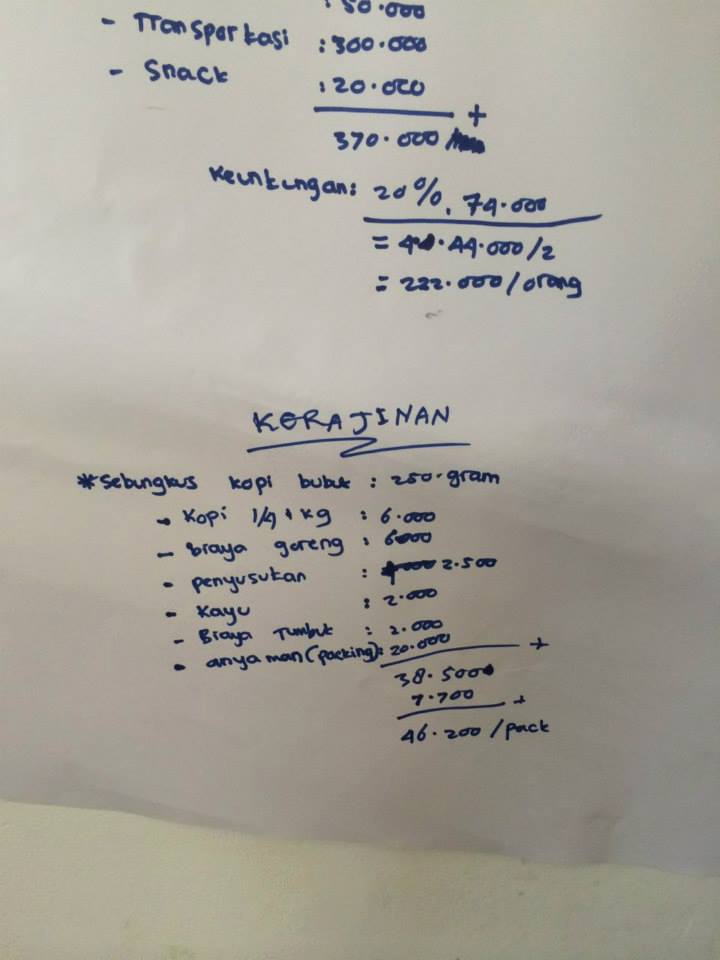 : 50.000
- Transportasi : 300.000
- Snack : 20.000
+
370.000
Keuntungan: 20%. 74.000
= 4.44.000/2
= 222.000/orang
KERAJINAN
*Sebungkus kopi bubuk : 250.gram
- Kopi 1/4 kg : 6.000
- Biaya goreng : 6000
- penyusukan : 2.500
- Kayu : 2.000
- Biaya Tumbuk : 2.000
- anyaman (packing): 20.000
+
38.500
7.700 +
46.200/pack